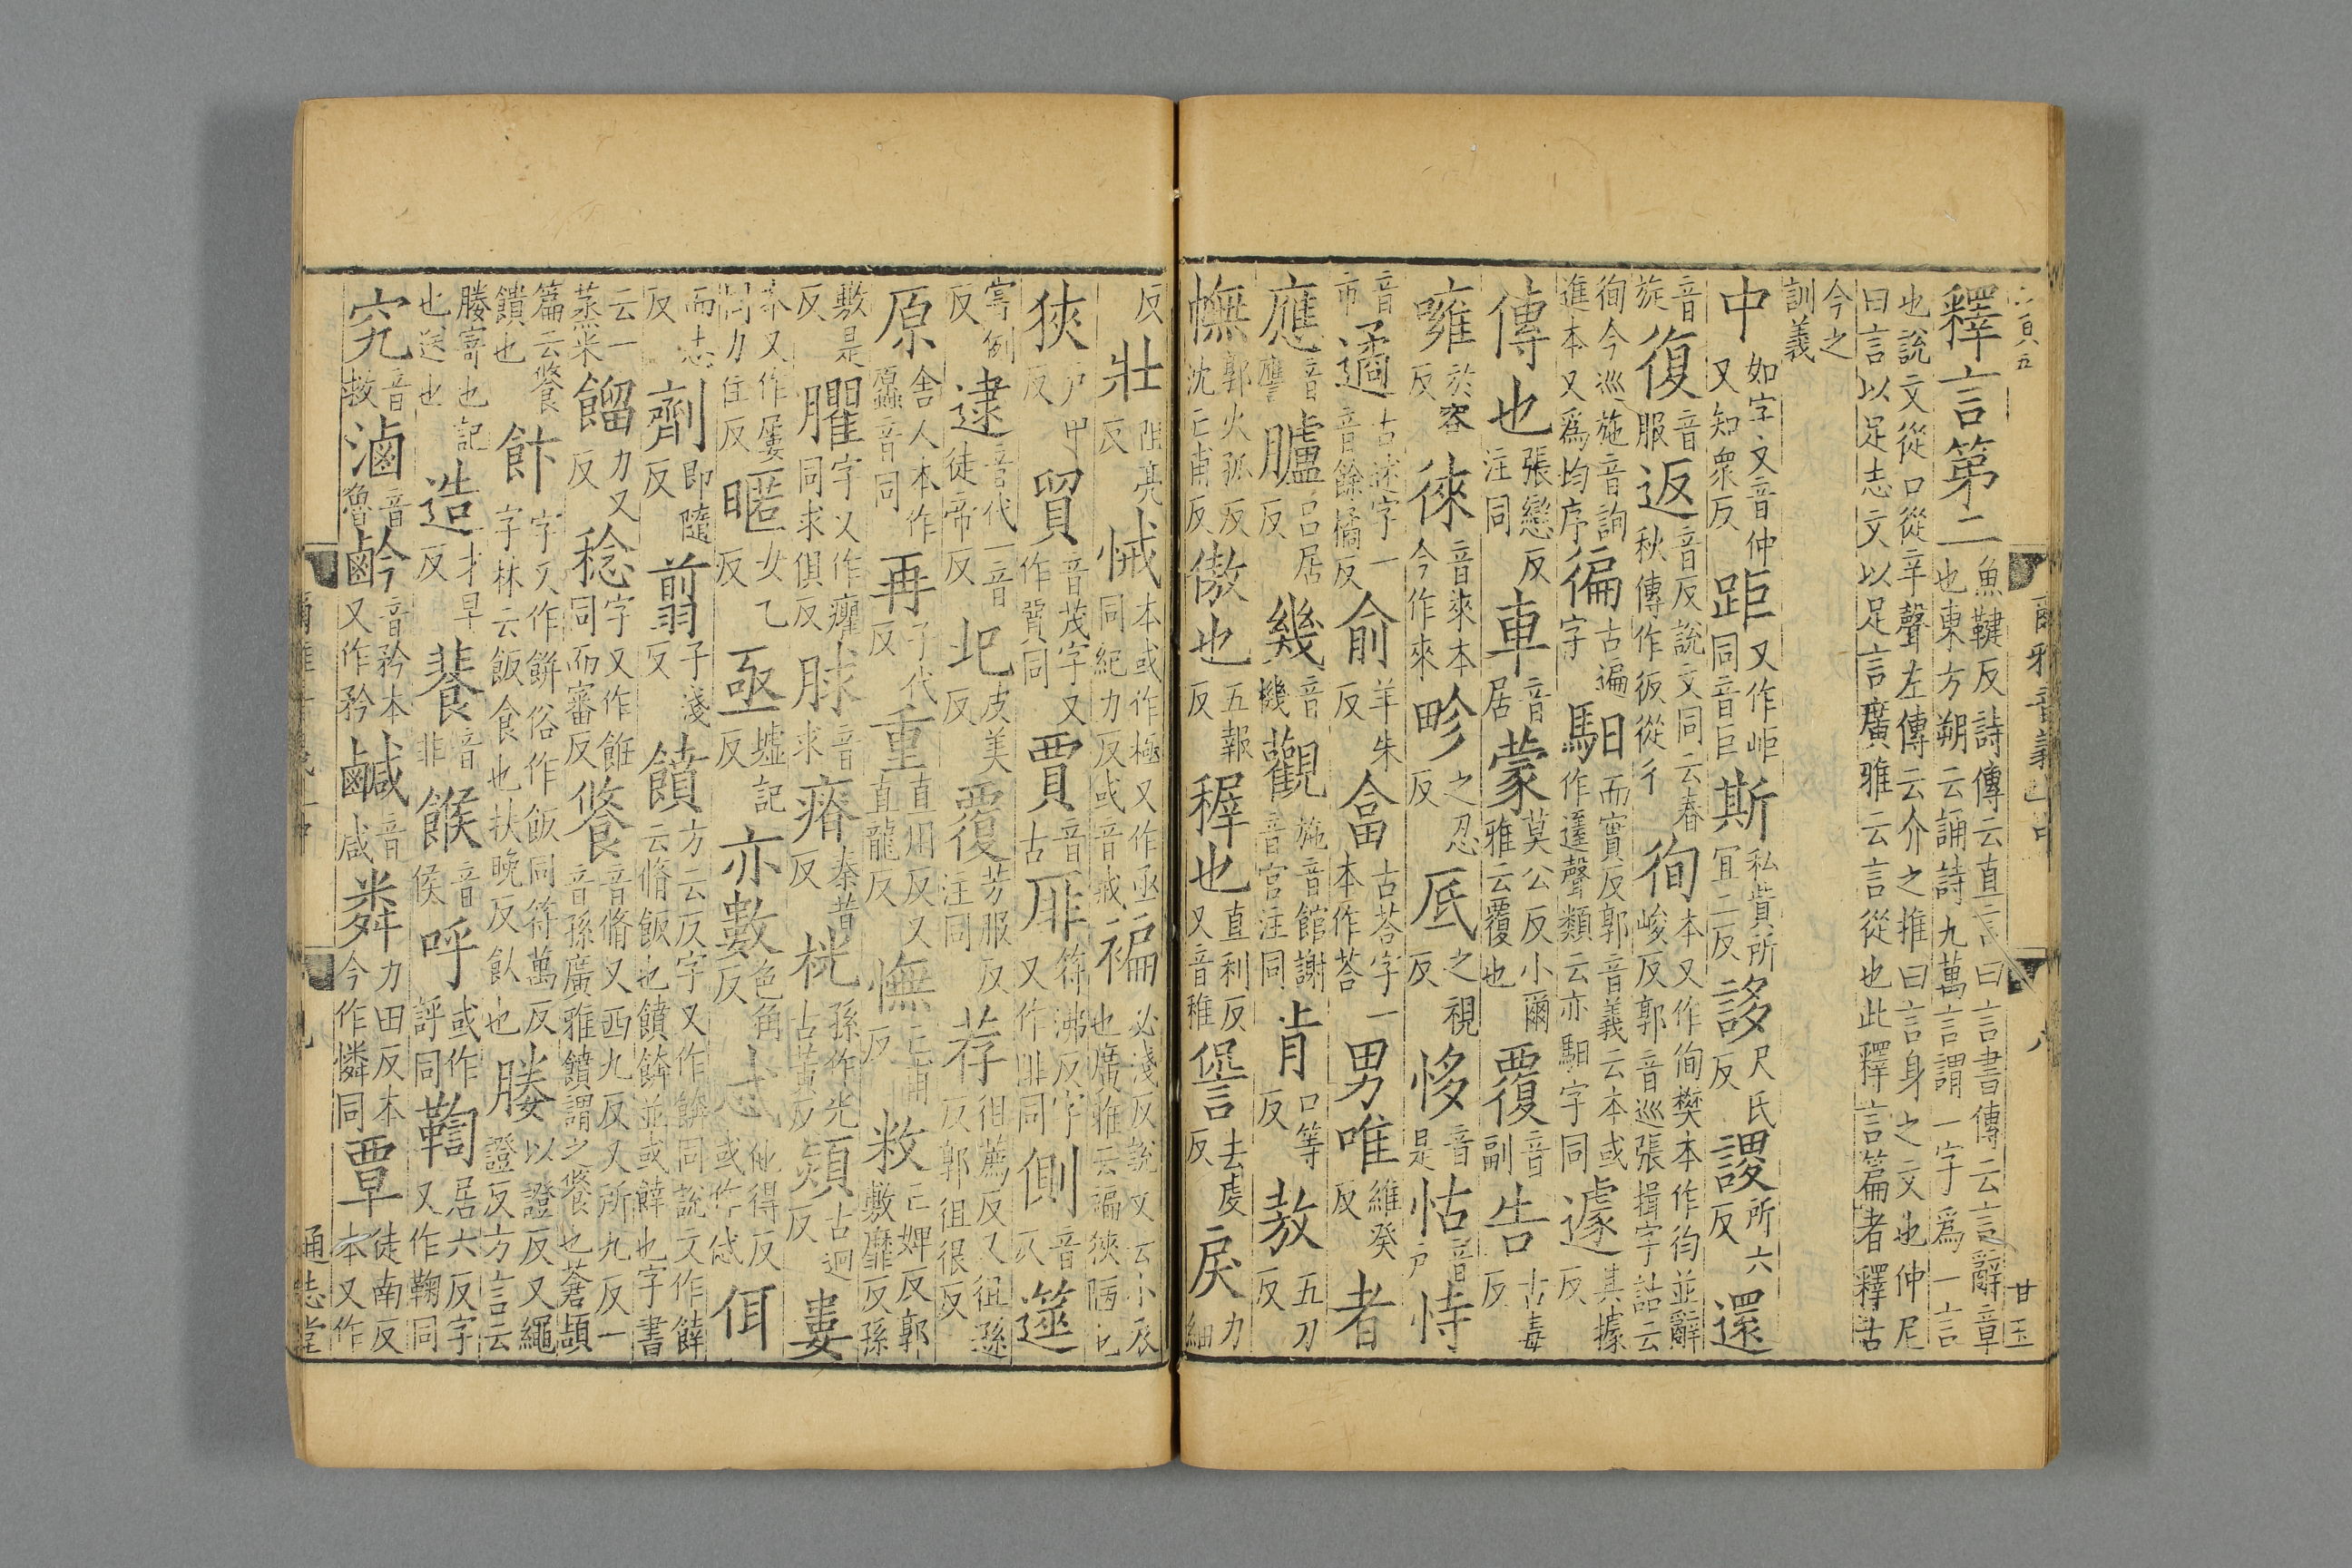 六百五
爾雅音義上中 八 甘玉
釋言第二魚鞬反詩傳云直言曰言書傳云言辭章也東方朔云誦詩九萬言謂一字爲一言
也說文從口從䇂聲左傳云介之推曰言身之文也仲尼曰言以足志文以足言廣雅云言從也此釋言篇者釋古
今之訓義
中如字又音仲又知衆反距又作岠同音巨斯私貲所宜二反誃尺氏反謖所六反還
音旋復音服返音反說文同云春秋傳作彶從彳徇本又作侚樊本作徇並辭峻反郭音巡張揖字詁云
徇今巡施音詢進本又爲均序徧古遍字馹而實反郭音義云本或作遳聲類云亦馹字同遽其據反
傳也張戀反注同車音居蒙莫公反小爾雅云覆也覆音副告古毒反
雍於容反徠音來本今作來畛之忍反厎之視反恀音是怙音户恃
音市遹古述字一音餘橘反俞羊朱反畣古荅字一本作荅男唯維癸反者
應音譍臚吕居反幾音機觀施音館謝音官注同肯口等反敖五刀反
憮郭火孤反沈亡甫反傲也五報反稺也直利反又音稚諐去虔反戾力細
反壯阻亮反悈本或作極又作亟同紀力反或音戒褊必淺反說文云小衣也廣雅云褊狹陋也
狹户甲反貿音茂字又作貿同賈音古厞符沸反字又作陫同側音仄筮
逮音代一音徒帝反圮皮美反覆芳服反注同荐徂薦反又徂孫反郭徂很反
原舍人本作䗪音同再子代反重直用反又直龍反憮亡甫反敉亡婢反郭敷靡反孫
敷是反臞字又作癯同求俱反脙音求瘠秦昔反桄孫作光古黄反熲古迥反婁
本又作屢同力住反暱女乙反亟墟記反亦數色角反忒他得反或作佴
而志反劑即隨反翦子淺反饙方云反字又作餴同說文作餴云脩飯也饙餴並或餴也字書
云一蒸米餾力又反稔字又作飪同而審反飧音脩又西九反又所九反一音孫廣雅饙謂之飧也蒼頡
篇云飧饙也飰字又作餅俗作飯同符萬反字林云飯食也扶晚反飤也媵以證反又繩證反方言云
媵寄也記也送也造才早反餥音非餱音侯呼或作評同鞫居六反字又作鞠同
究音救滷音魯䰼音矜本又作矜鹹音咸粦力田反本今作憐同覃徒南反本又作
通志堂